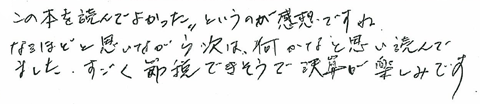 この本を読んでよかった〃というのが感想ですね
なるほどと思いながら次は、何かなと思い読んで
ました。すごく節税できそうで決算が楽しみです